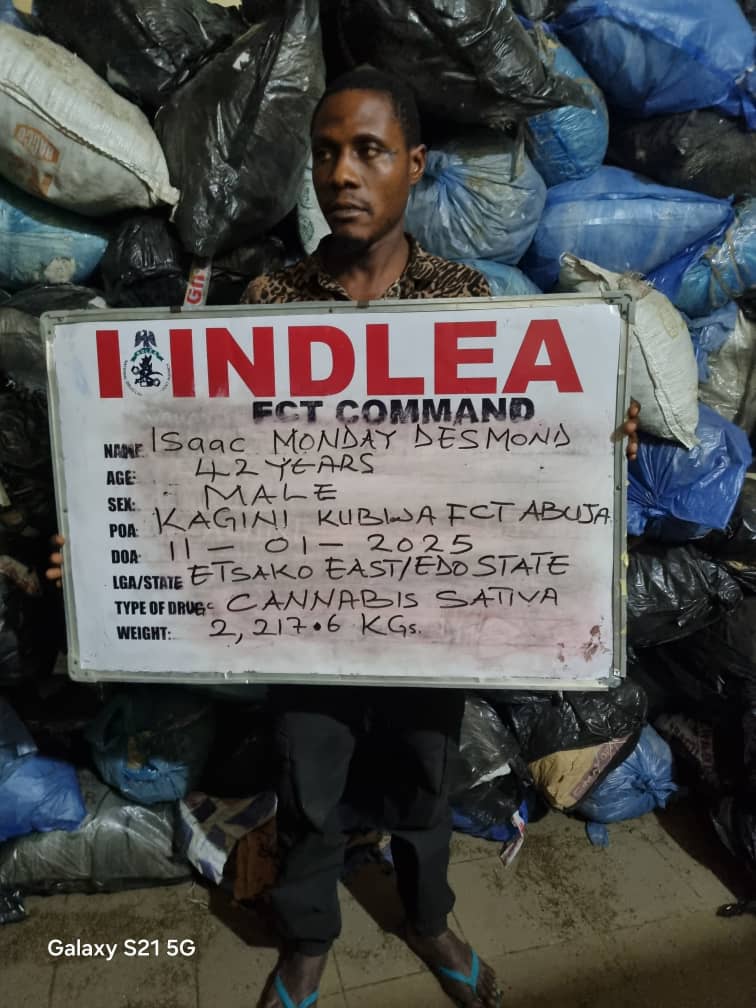 NDLEA
FCT COMMAND
NAME: Isaac MONDAY DESMOND
AGE: 42 YEARS
SEX: MALE
POA: KAGINI KUBWA FCT ABUJA
DOA: 11 - 01 - 2025
LGA/STATE ETSAKO EAST/EDO STATE
TYPE OF DRUG: CANNABIS SATIVA
WEIGHT: 2,217.6 KGs.
Galaxy S21 5G